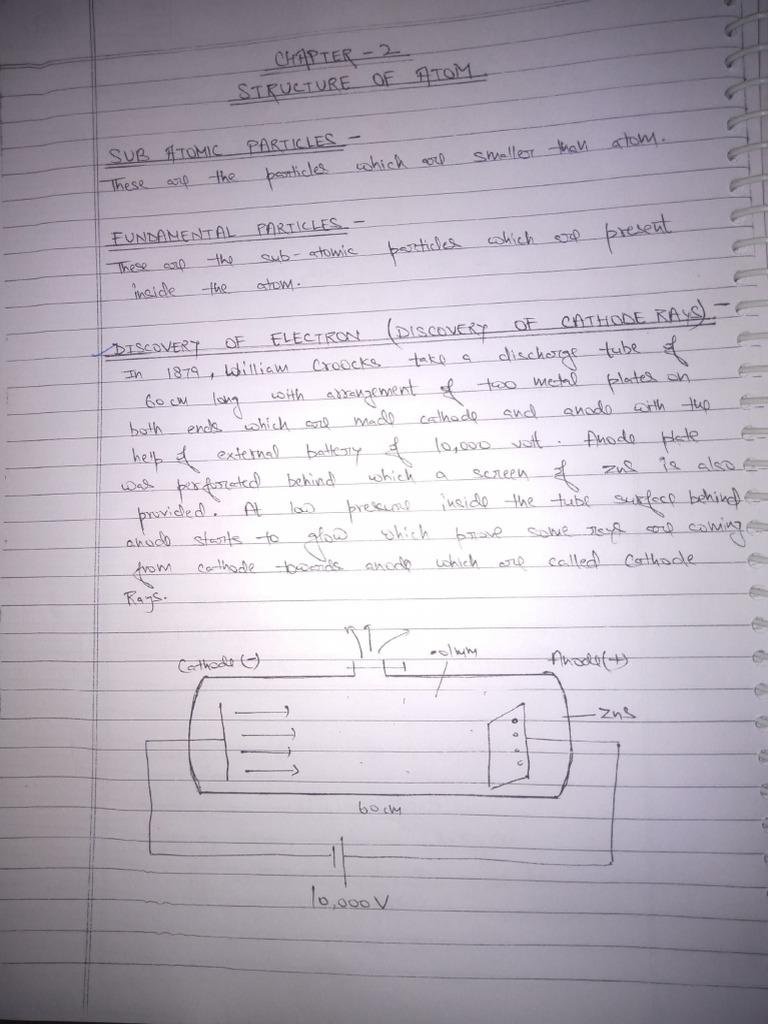 CHAPTER - 2
STRUCTURE OF ATOM
SUB ATOMIC PARTICLES -
These are the particles which are smaller than atom.
FUNDAMENTAL PARTICLES -
These are the sub-atomic particles which are present
inside the atom.
DISCOVERY OF ELECTRON (DISCOVERY OF CATHODE RAYS) -
In 1879, William Croocks take a discharge tube of
60 cm long with arrangement of two metal plates on
both ends which are made cathode and anode with the
help of external battery of 10,000 volt. Anode plate
was perforated behind which a screen of ZnS is also
provided. At low pressure inside the tube surface behind
anode starts to glow which prove some rays are coming
from cathode towards anode which are called Cathode
Rays.
Cathode (-) .01mm Anode (+)
ZnS
60 cm
10,000 V